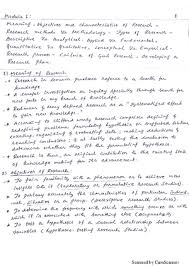 Module 1:
Meaning, Objectives and characteristics of Research -
Research methods Vs Methodology - Types of Research -
Descriptive Vs Analytical, Applied Vs Fundamental,
Quantitative Vs Qualitative, Conceptual Vs Empirical -
Research process - Criteria of Good Research - Developing a
Research Plan.
Meaning of Research
Research in common parlance refers to a search for
knowledge
investigation or enquiry specially through search for
new facts in any branch of knowledge.
Redman and Mory defines research as a "systematized effort
to gain new knowledge"
According to Clifford Woody research comprises defining &
redefining problems, formulating hypothesis
collecting, organising & evaluating data, making deductions &
reaching conclusions
determine whether they fit the formulating hypothesis
Research is, thus, an original contribution to the existing stock
of knowledge making for its advancement.
Objectives of Research
To gain familiarity with a phenomenon or to achieve new
insights into it (Exploratory or formulative Research Studies)
To portray accurately the characteristics of particular individual,
situation or a group (descriptive research studies)
To determine the frequency with which something occurs or with
which it is associated with something else (diagnostic)
To test a hypothesis of a causal relationship between
variables (hypothesis-testing Research Studies)
Scanned by CamScanner